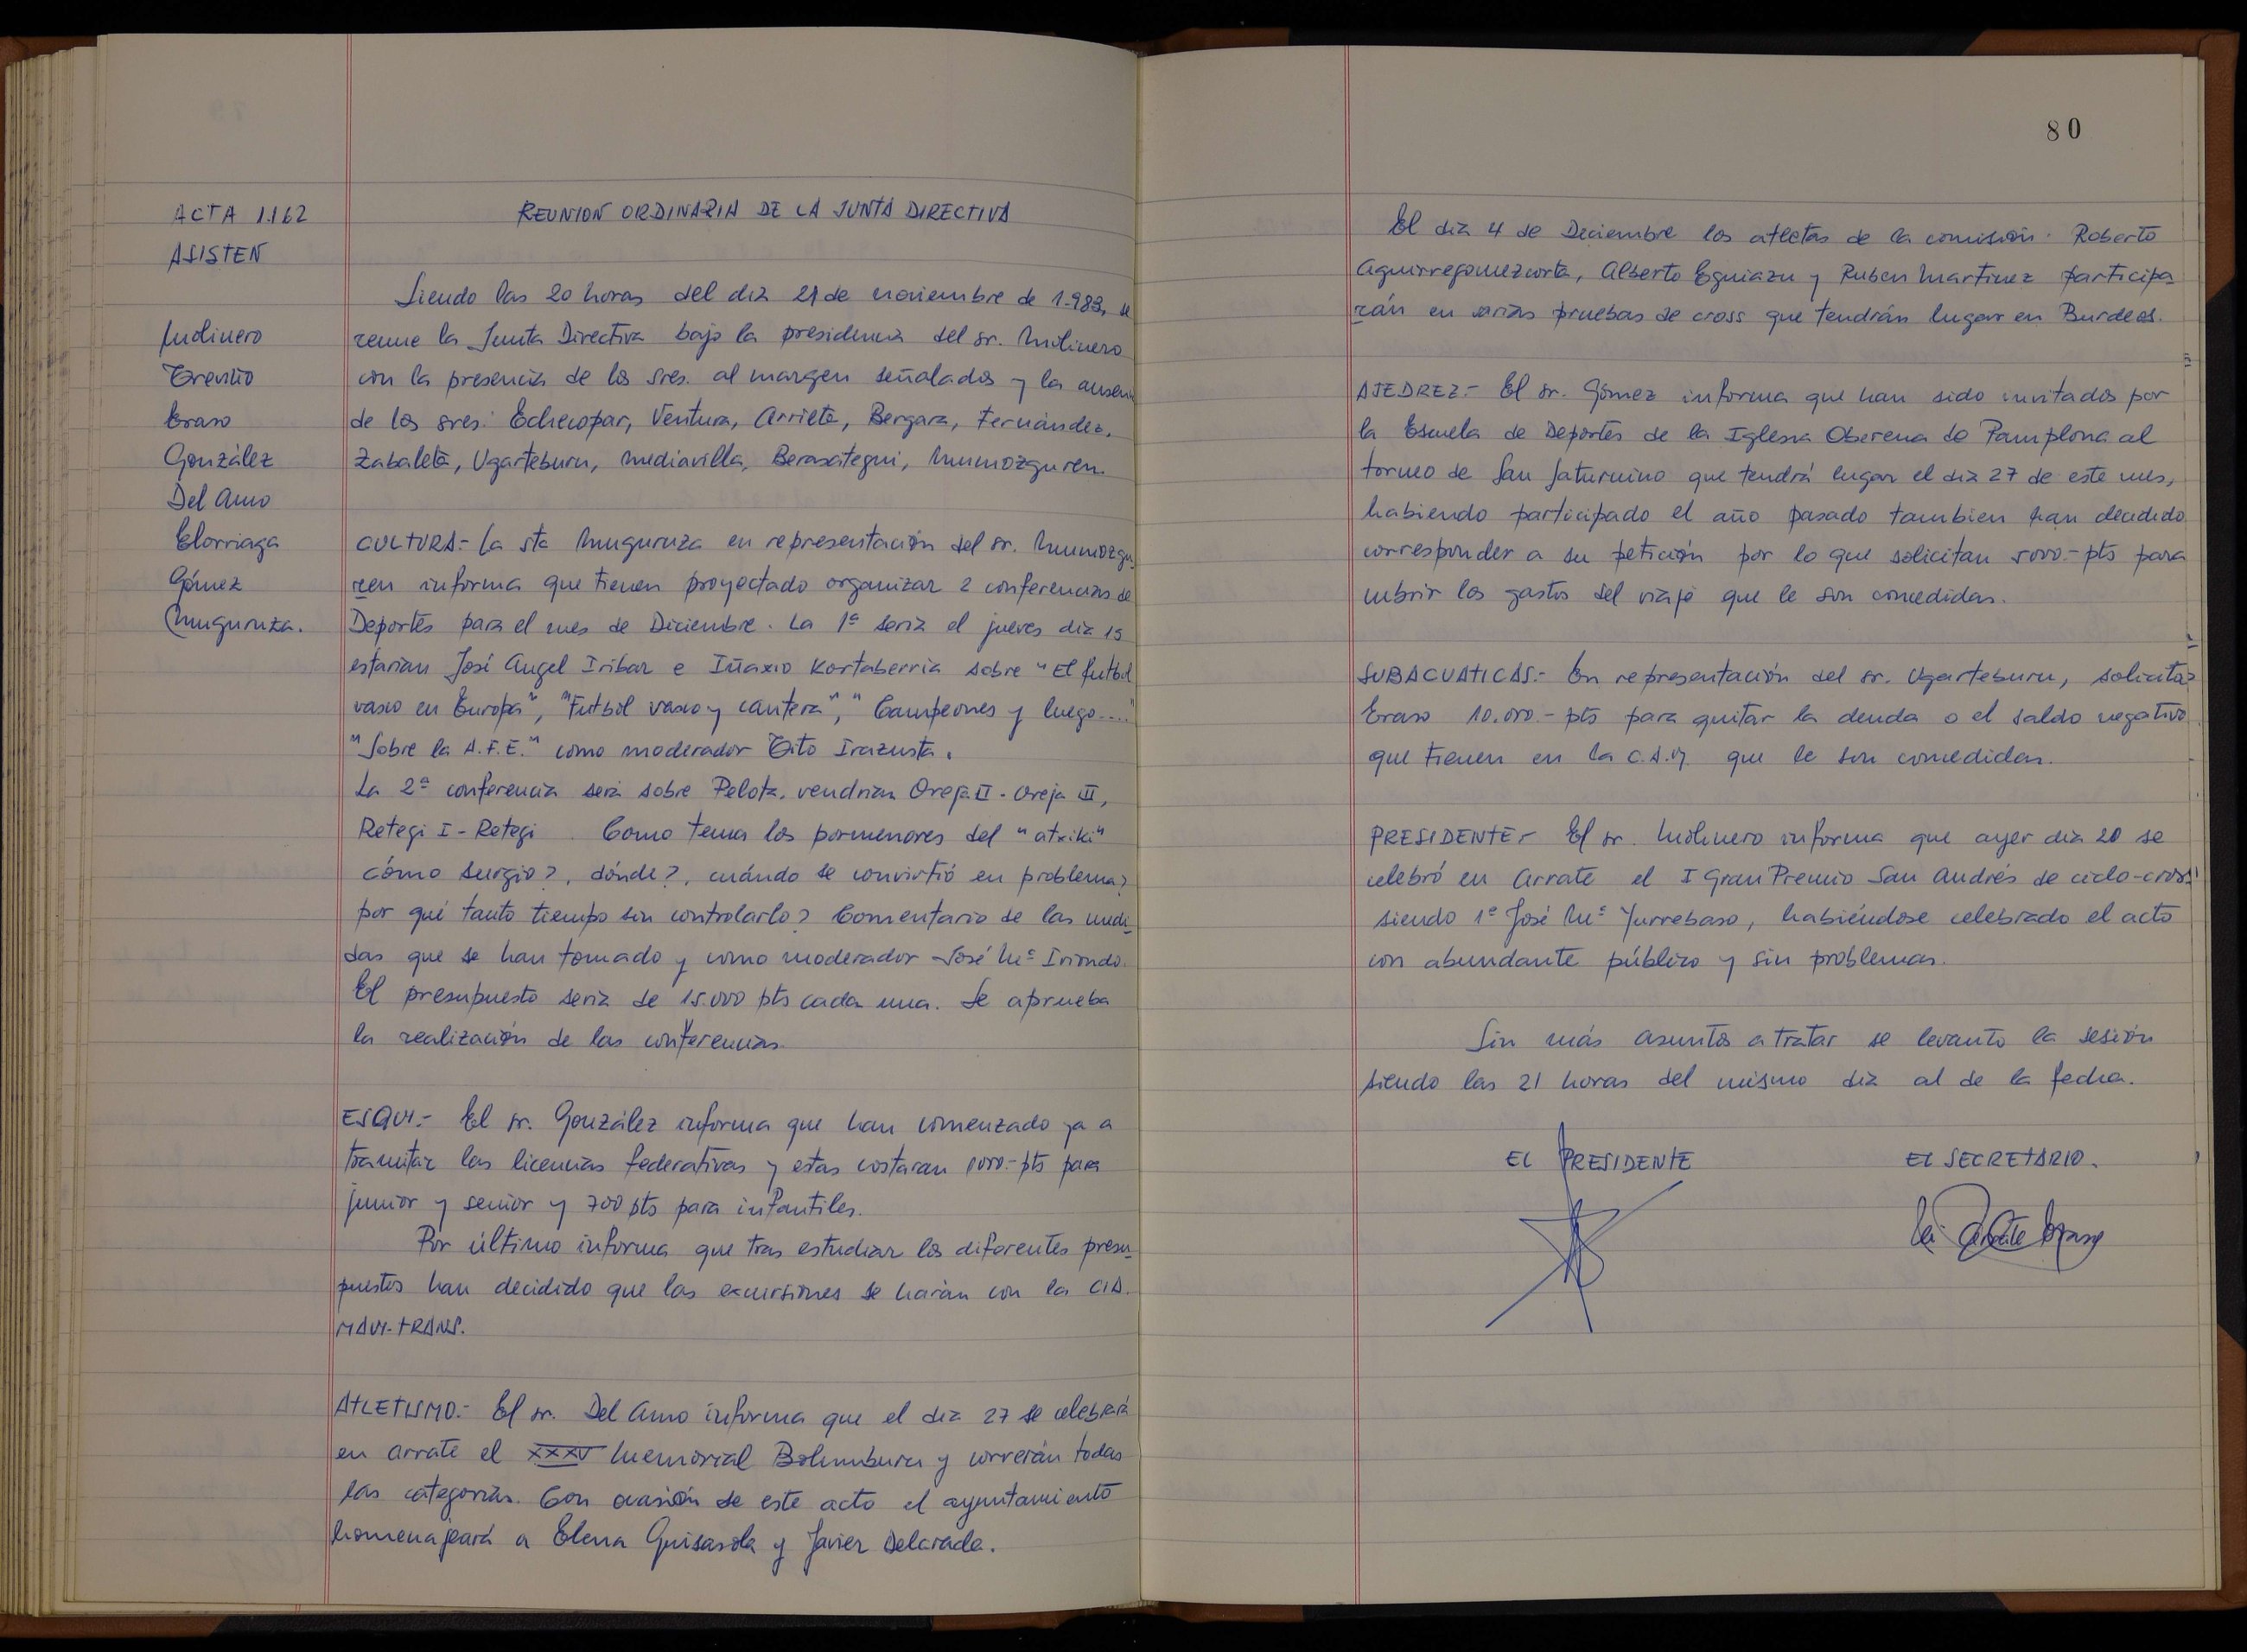 ACTA 1.162
ASISTEN
Molinero
Treviño
Eraso
González
Del Amo
Elorriaga
Gómez
Muguruza.
REUNION ORDINARIA DE LA JUNTA DIRECTIVA
Siendo las 20 horas del dia 21 de noviembre de 1.983, se
reune la Junta Directiva bajo la presidencia del sr. Molinero
con la presencia de los sres. al margen señalados y la ausencia
de los sres: Echecopar, Ventura, Arrieta, Bergara, Fernández,
Zabaleta, Ugarteburu, Mediavilla, Berasategui, Mumozguren.
CULTURA.- La sta Muguruza en representación del sr. Mumozgu-
ren informa que tienen proyectado organizar 2 conferencias de
Deportes para el mes de Diciembre. La 1ª seria el jueves dia 15
estarian José Angel Iribar e Iñaxio Kortaberria sobre "El futbol
vasco en Europa", "Futbol vasco y cantera", "Campeones y luego...."
"Sobre la A.F.E." como moderador Tito Irazusta.
La 2ª conferencia será sobre Pelota, vendrian Oreja II - Oreja III,
Retegi I - Retegi . Como tema los pormenores del "atxiki"
cómo surgio?, dónde?, cuándo se convirtió en problema?
por qué tanto tiempo sin controlarlo? Comentario de las medi-
das que se han tomado y como moderador José Mª Iriondo.
El presupuesto seria de 15.000 pts cada una. Se aprueba
la realización de las conferencias.
ESQUI.- El sr. González informa que han comenzado ya a
tramitar las licencias federativas y estas costaran 1000.- pts para
junior y senior y 700 pts para infantiles.
Por último informa que tras estudiar los diferentes presu-
puestos han decidido que las excursiones se harán con la CIA.
MAVI-TRANS.
ATLETISMO.- El sr. Del Amo informa que el dia 27 se celebrará
en Arrate el XXXV Memorial Bolumburu y correrán todas
las categorías. Con ocasión de este acto el ayuntamiento
homenajeará a Elena Guisasola y Javier Delarada.
80
El dia 4 de Diciembre los atletas de la comisión. Roberto
Aguirregomezcorta, Alberto Eguiazu y Ruben Martinez participa-
rán en varias pruebas de cross que tendrán lugar en Burdeos.
AJEDREZ.- El sr. Gómez informa que han sido invitados por
la Escuela de Deportes de la Iglesia Oberena de Pamplona al
torneo de San Saturnino que tendrá lugar el dia 27 de este mes,
habiendo participado el año pasado tambien han decidido
corresponder a su petición por lo que solicitan 5000.- pts para
cubrir los gastos del viaje que le son concedidas.
SUBACUATICAS.- En representación del sr. Ugarteburu, solicita
Eraso 10.000.- pts para quitar la deuda o el saldo negativo
que tienen en la C.A.M. que le son concedidas.
PRESIDENTE- El sr. Molinero informa que ayer dia 20 se
celebró en Arrate el I Gran Premio San Andrés de ciclo-cross
siendo 1º José Mª Yurrebaso, habiéndose celebrado el acto
con abundante público y sin problemas.
Sin más asuntos a tratar se levanto la sesión
siendo las 21 horas del mismo dia al de la fecha.
EL PRESIDENTE
EL SECRETARIO.